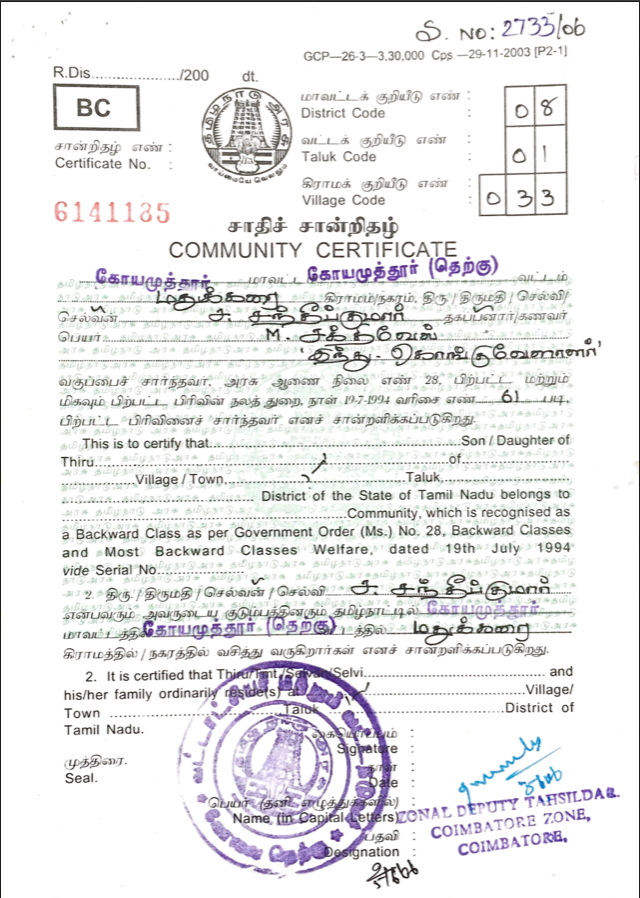 S. NO: 2733/06
GCP—26-3—3,30,000 Cps —29-11-2003 [P2-1]
R.Dis....................../200 dt.
BC
தமிழ்நாடு அரசு
வாய்மையே வெல்லும்
மாவட்டக் குறியீடு எண் :
District Code : 08
வட்டக் குறியீடு எண் :
Taluk Code : 01
கிராமக் குறியீடு எண் :
Village Code : 033
சான்றிதழ் எண் :
Certificate No. :
6141135
சாதிச் சான்றிதழ்
COMMUNITY CERTIFICATE
கோயமுத்தூர் மாவட்ட கோயமுத்தூர் (தெற்கு) வட்டம்
மதுக்கரை கிராமம்/நகரம், திரு / திருமதி / செல்வி/
செல்வன் ச. சந்தீப்குமார் தகப்பனார்/கணவர்
பெயர் M. சக்திவேல்
இந்து. கொங்குவேளாளர்
வகுப்பைச் சார்ந்தவர். அரசு ஆணை நிலை எண் 28, பிற்பட்ட மற்றும்
மிகவும் பிற்பட்ட பிரிவின் நலத் துறை, நாள் 19-7-1994 வரிசை எண் 61 படி,
பிற்பட்ட பிரிவினைச் சார்ந்தவர் எனச் சான்றளிக்கப்படுகிறது.
This is to certify that..............................................Son / Daughter of
Thiru................................................................ of ......................
..................Village / Town............................Taluk,......................
............................... District of the State of Tamil Nadu belongs to
..............................................Community, which is recognised as
a Backward Class as per Government Order (Ms.) No. 28, Backward Classes
and Most Backward Classes Welfare, dated 19th July 1994
vide Serial No..................
2. திரு. / திருமதி / செல்வன் / செல்வி ச. சந்தீப்குமார்
என்பவரும் அவருடைய குடும்பத்தினரும் தமிழ்நாட்டில் கோயமுத்தூர்
மாவட்டத்தில் கோயமுத்தூர் (தெற்கு) வட்டத்தில் மதுக்கரை
கிராமத்தில் / நகரத்தில் வசித்து வருகிறார்கள் எனச் சான்றளிக்கப்படுகிறது.
2. It is certified that Thiru/Tmt./Selvan/Selvi............................ and
his/her family ordinarily reside(s) at ............................Village/
Town ..............................Taluk ............................District of
Tamil Nadu.
கையொப்பம் :
Signature :
முத்திரை.
Seal.
நாள் :
Date :
பெயர் (தனி எழுத்துக்களில்)
Name (in Capital Letters)
ZONAL DEPUTY TAHSILDAR.
COIMBATORE ZONE,
COIMBATORE,
பதவி :
Designation :